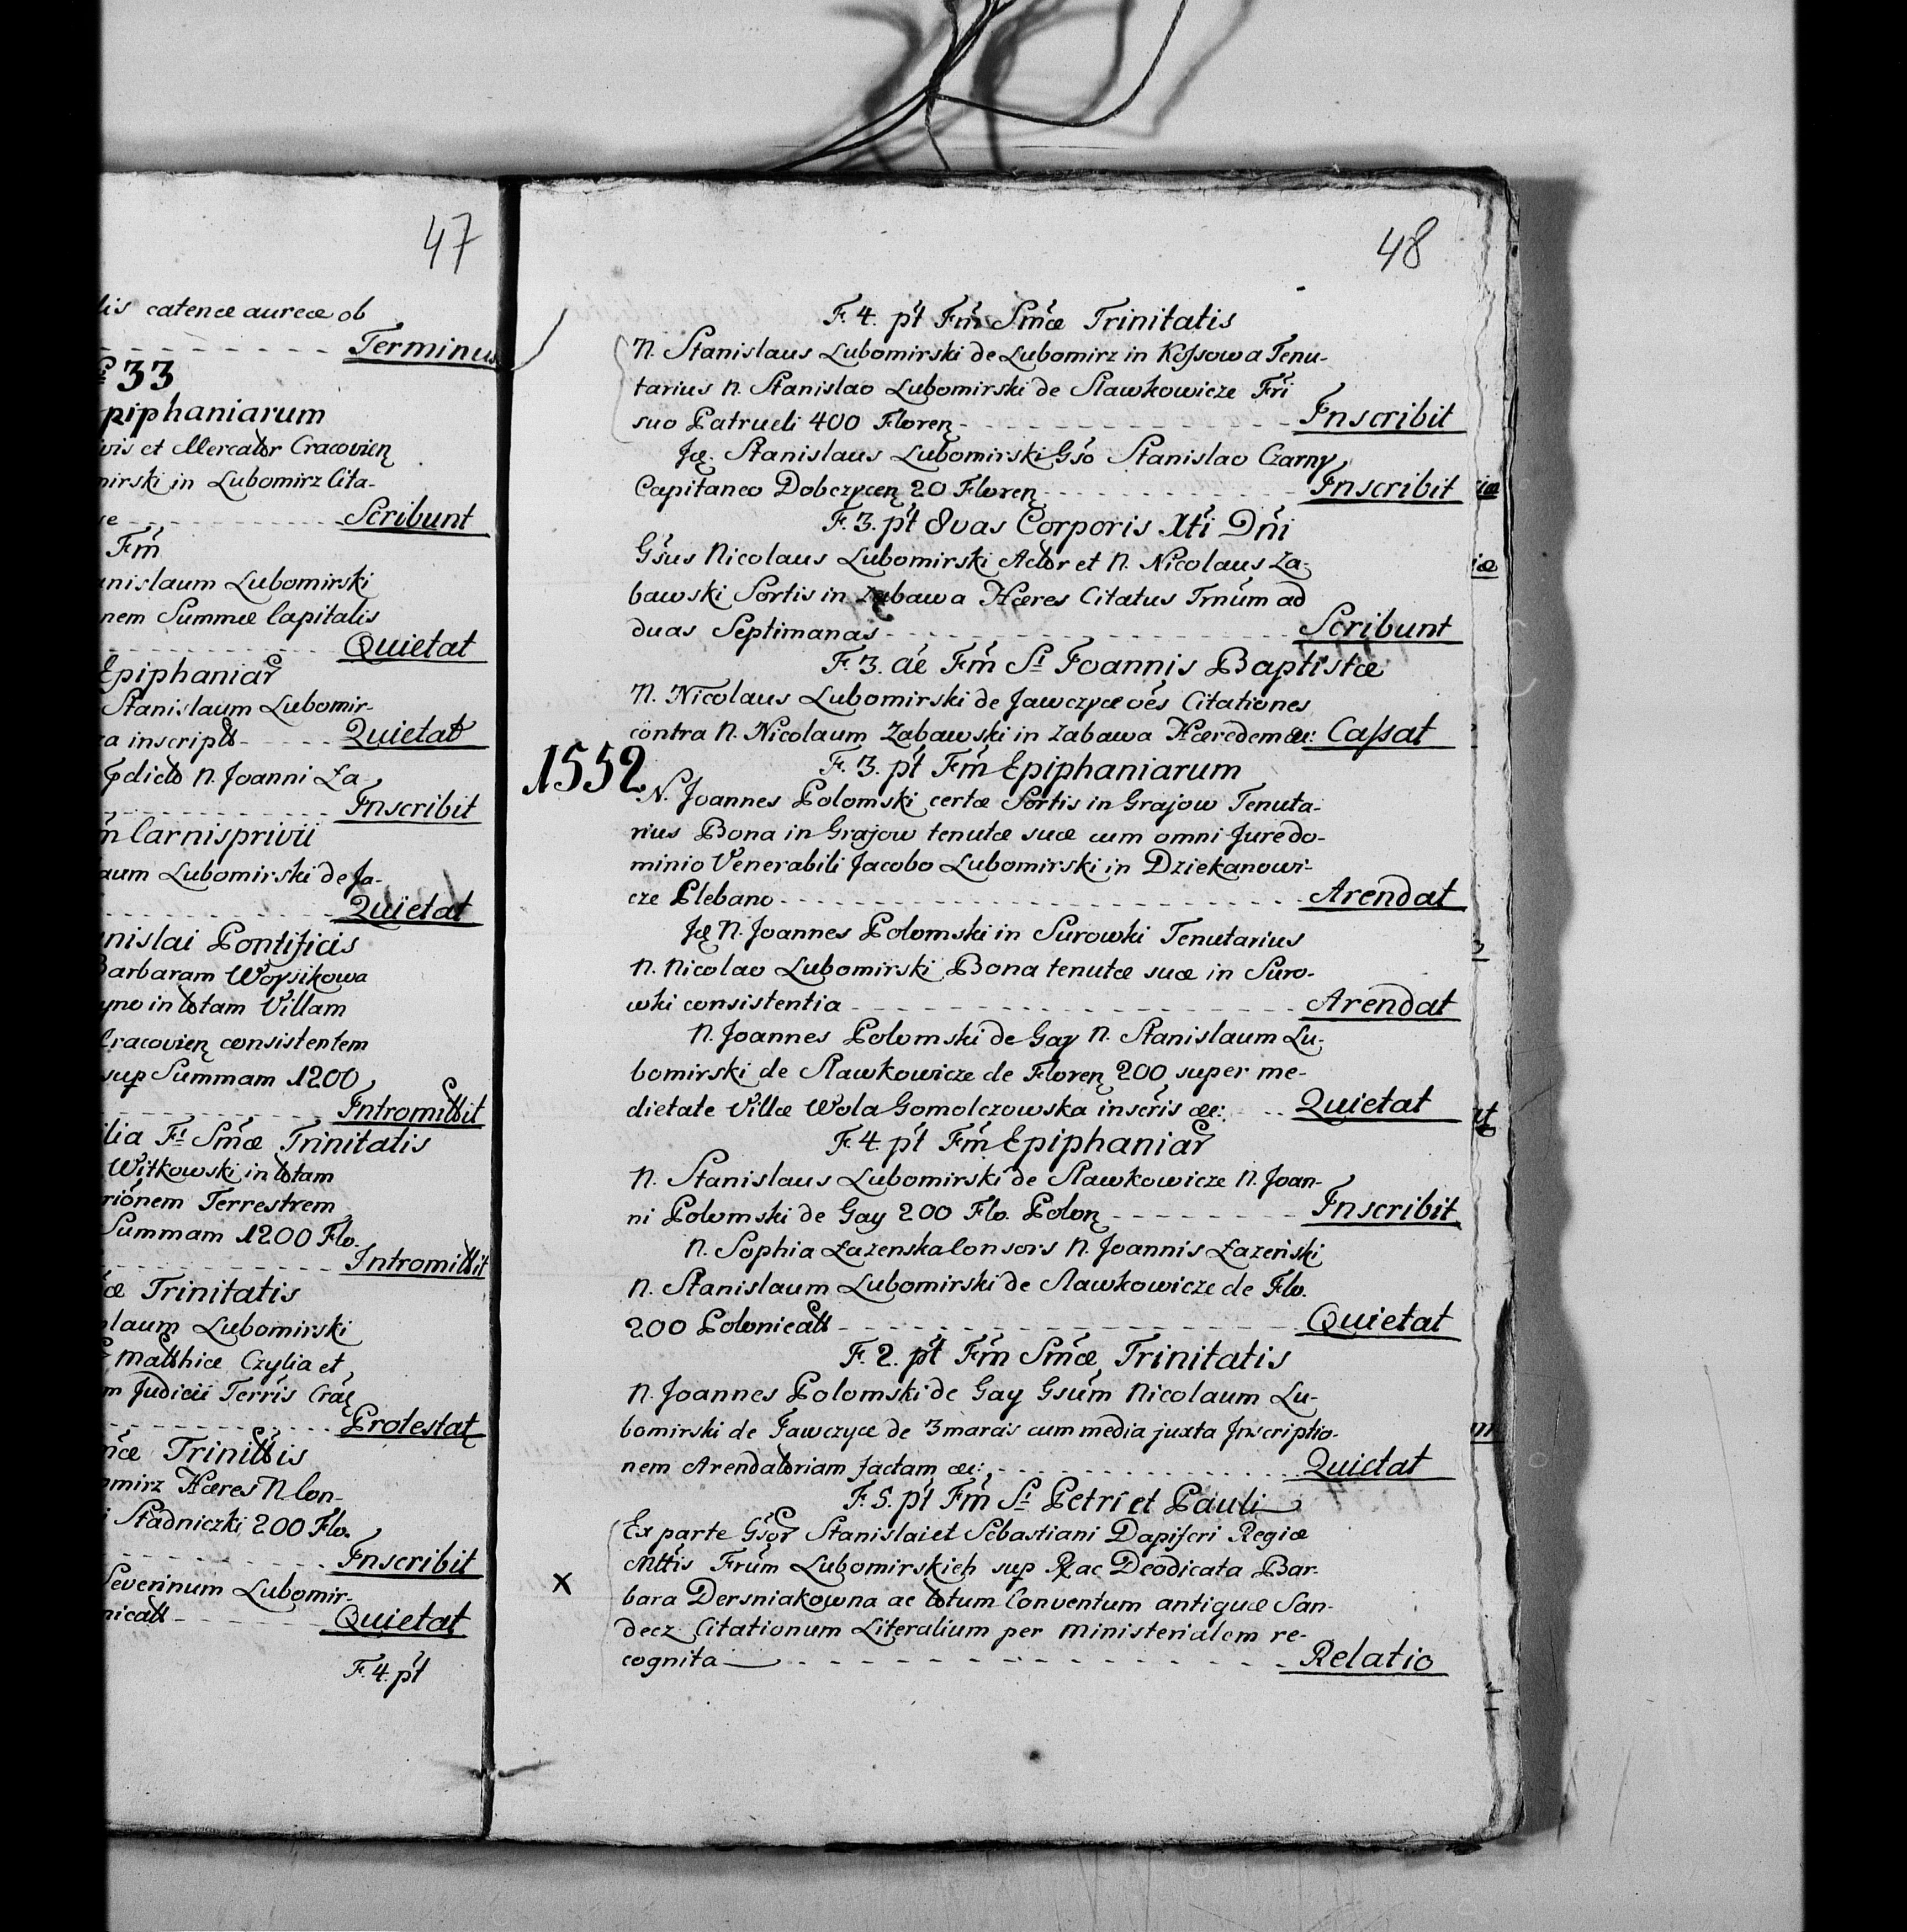 47
lis catenæ aureæ ob
Terminus
33
piphaniarum
ivis et Mercator Cracovien
mirski in Lubomirz Cita-
Scribunt
Fm̃
anislaum Lubomirski
nem Summæ Capitalis
Quietat
Epiphaniar
Stanislaum Lubomir-
za inscripto Quietat
pdicto N. Joanni Ła-
Inscribit
m Carnisprivii
aum Lubomirski de Ja-
Quietat
nislai Pontificis
Barbaram Woysikowa
yno in totam Villam
Cracovien consistentem
sup Summam 1200
Intromittit
ilia Fi Smæ Trinitatis
Witkowski in totam
rionem Terrestrem
Summam 1200 Flo.
Intromittit
æ Trinitatis
laum Lubomirski
Matthiæ Czylia et
m Judicii Terris Crac
Protestat
mæ Trinittis
omirz Hæres N Con-
i Stadniczki 200 Flo.
Inscribit
Severinum Lubomir-
nicatt Quietat
F. 4. pt
48
F. 4. pt Fm Smæ Trinitatis
N. Stanislaus Lubomirski de Lubomirz in Kossowa Tenu-
tarius N. Stanislao Lubomirski de Slawkowicze Fri
suo Patrueli 400 Floren Inscribit
Id. Stanislaus Lubomirski Gso Stanislao Czarny
Capitaneo Dobczycen 20 Floren Inscribit
F. 3. pt 8vas Corporis Xti Dni
Gsus Nicolaus Lubomirski Actor et N. Nicolaus Za-
bawski Sortis in Zabawa Hæres Citatus Trnum ad
duas Septimanas Scribunt
F. 3. ae Fm Si Joannis Baptistæ
N. Nicolaus Lubomirski de Jawczyce oes Citationes
contra N. Nicolaum Zabawski in Zabawa Hæredem æc: Cassat
1552
F. 3. pt Fm Epiphaniarum
N. Joannes Polomski certæ Sortis in Grajow Tenuta-
rius Bona in Grajow tenutæ suæ cum omni Jure do-
minio Venerabili Jacobo Lubomirski in Dziekanowi-
cze Plebano Arendat
Id N. Joannes Polomski in Surowki Tenutarius
N. Nicolao Lubomirski Bona tenutæ suæ in Suro-
wki consistentia Arendat
N. Joannes Polomski de Gay N. Stanislaum Lu-
bomirski de Slawkowicze de Floren 200 super me-
dietate Villæ Wola Gomolczowska inscris æc: Quietat
F. 4. pt Fm Epiphaniar
N. Stanislaus Lubomirski de Slawkowicze N. Joan-
ni Polomski de Gay 200 Flo. Polon Inscribit
N. Sophia Łazenska Consors N. Joannis Łazeński
N. Stanislaum Lubomirski de Slawkowicze de Flo.
200 Polonicatt Quietat
F. 2. pt Fm Smæ Trinitatis
N. Joannes Polomski de Gay Gsum Nicolaum Lu-
bomirski de Jawczyce de 3 marcis cum media juxta Inscriptio-
nem Arendatoriam factam æc: Quietat
F. 5. pt Fm Si Petri et Pauli
x
Ex parte Gsor Stanislai et Sebastiani Dapiferi Regiæ
Mttis Frum Lubomirskich sup Rlac Deodicata Bar-
bara Dersniakowna ac totum Conventum antiquæ San-
decz Citationum Literalium per Ministerialem re-
cognita Relatio